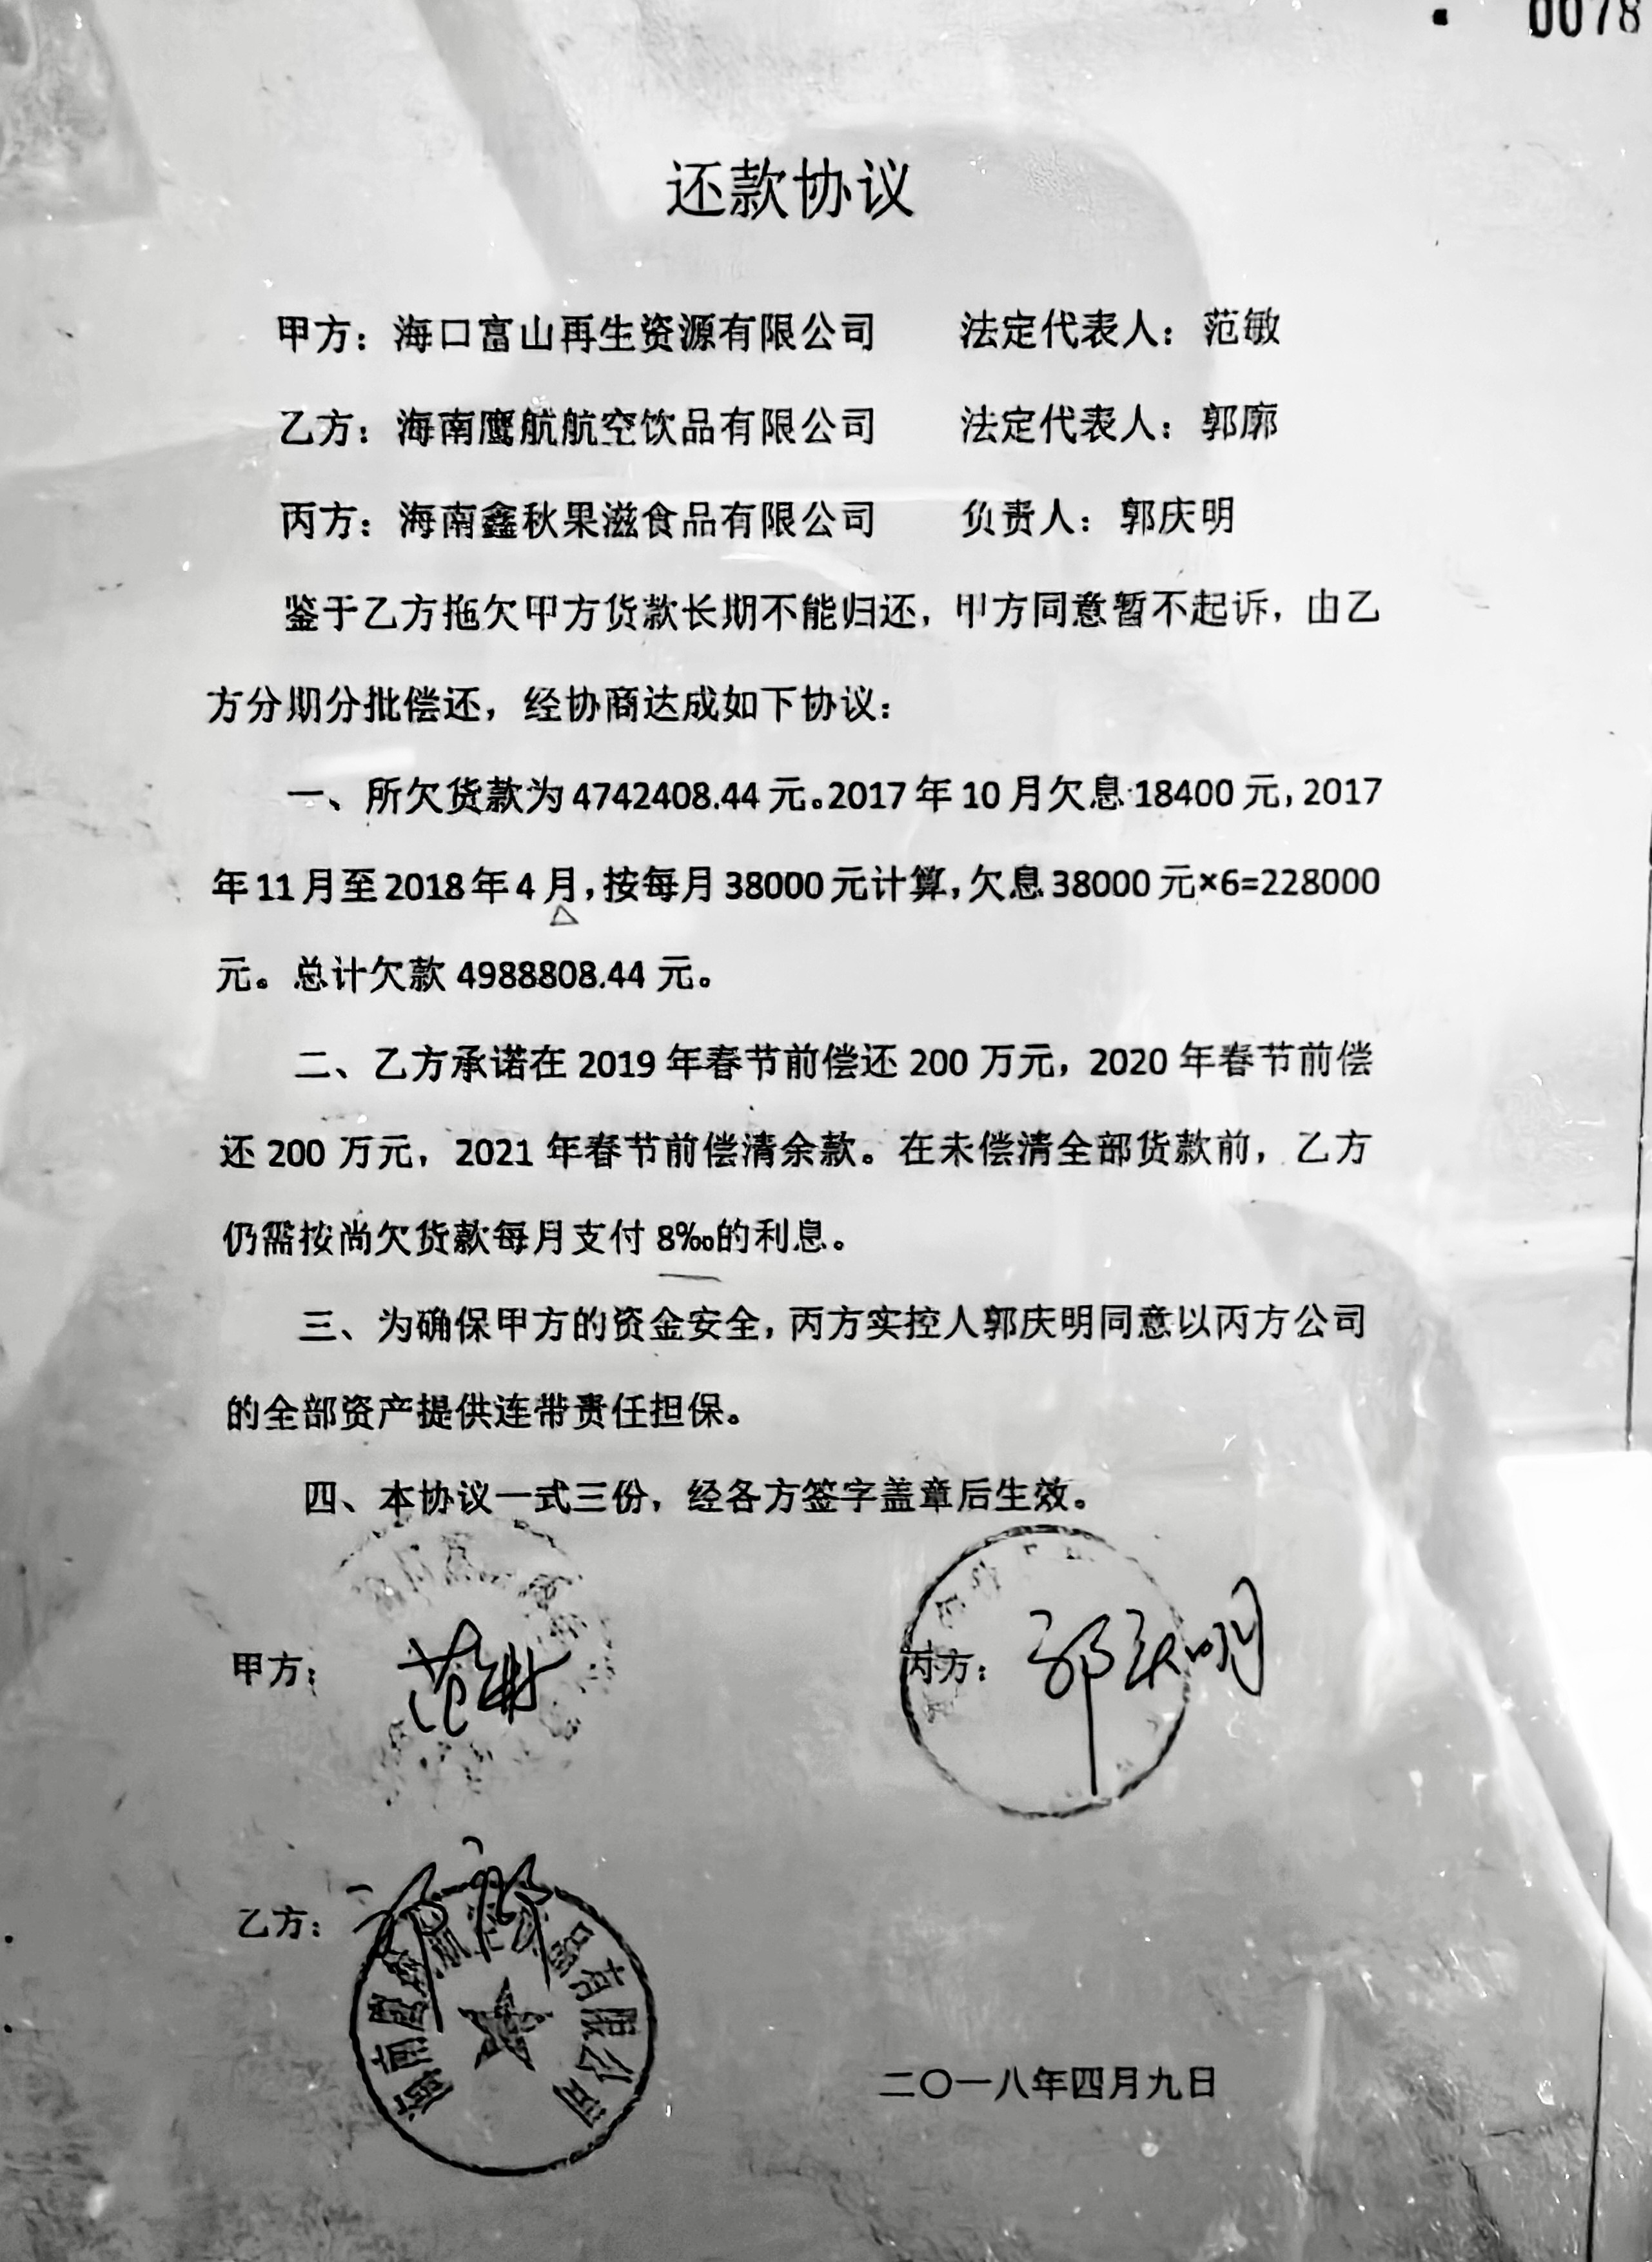 0078
还款协议
甲方：海口富山再生资源有限公司 法定代表人：范敏
乙方：海南鹰航航空饮品有限公司 法定代表人：郭廓
丙方：海南鑫秋果滋食品有限公司 负责人：郭庆明
鉴于乙方拖欠甲方货款长期不能归还，甲方同意暂不起诉，由乙
方分期分批偿还，经协商达成如下协议：
一、所欠货款为4742408.44元。2017年10月欠息18400元，2017
年11月至2018年4月，按每月38000元计算，欠息38000元×6=228000
元。总计欠款4988808.44元。
二、乙方承诺在2019年春节前偿还200万元，2020年春节前偿
还200万元，2021年春节前偿清余款。在未偿清全部货款前，乙方
仍需按尚欠货款每月支付8‰的利息。
三、为确保甲方的资金安全，丙方实控人郭庆明同意以丙方公司
的全部资产提供连带责任担保。
四、本协议一式三份，经各方签字盖章后生效。
甲方： 范敏 丙方： 郭庆明
乙方：
有限公司
二〇一八年四月九日